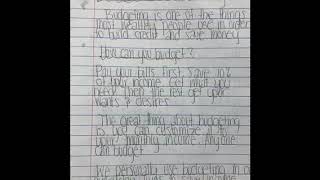 Budgeting is one of the things
most wealthy people use in order
to build credit and save money
How can you budget?
Pay your bills first, save 10%
of your income. Get what you
need. Then the rest get your
wants & desires
The great thing about budgeting
is you can customize it to
your monthly income. Anyone
can budget
We personally use budgeting in